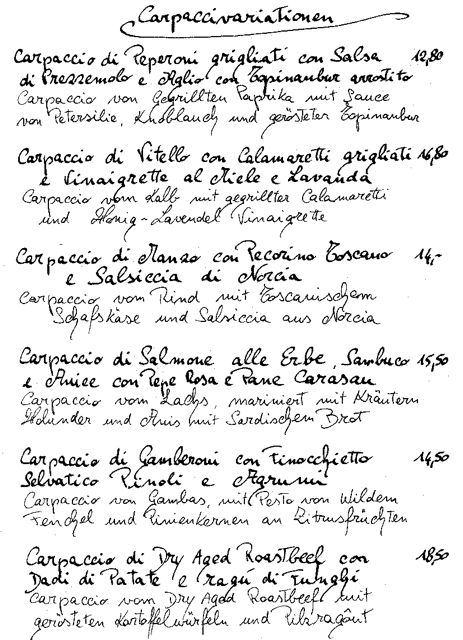 Carpaccivariationen
Carpaccio di Peperoni grigliati con Salsa 12,80
di Prezzemolo e Aglio con Topinambur arrostito
Carpaccio von Gegrillten Paprika mit Sauce
von Petersilie, Knoblauch und gerösteter Topinambur
Carpaccio di Vitello con Calamaretti grigliati 16,80
e Vinaigrette al Miele e Lavanda
Carpaccio vom Kalb mit gegrillter Calamaretti
und Honig-Lavendel Vinaigrette
Carpaccio di Manzo con Pecorino Toscano 14,-
e Salsiccia di Norcia
Carpaccio vom Rind mit Toscanischem
Schafskäse und Salsiccia aus Norcia
Carpaccio di Salmone alle Erbe, Sambuco 15,50
e Anice con Pepe Rosa e Pane Carasau
Carpaccio vom Lachs, mariniert mit Kräutern
Holunder und Anis mit Sardischem Brot
Carpaccio di Gamberoni con Finocchietto 14,50
Selvatico Pinoli e Agrumi
Carpaccio von Gambas, mit Pesto von Wildem
Fenchel und Pinienkernen an Zitrusfrüchten
Carpaccio di Dry Aged Roastbeef con 18,50
Dadi di Patate e ragù di Funghi
Carpaccio vom Dry Aged Roastbeef mit
gerösteten Kartoffelwürfeln und Pilzragôut